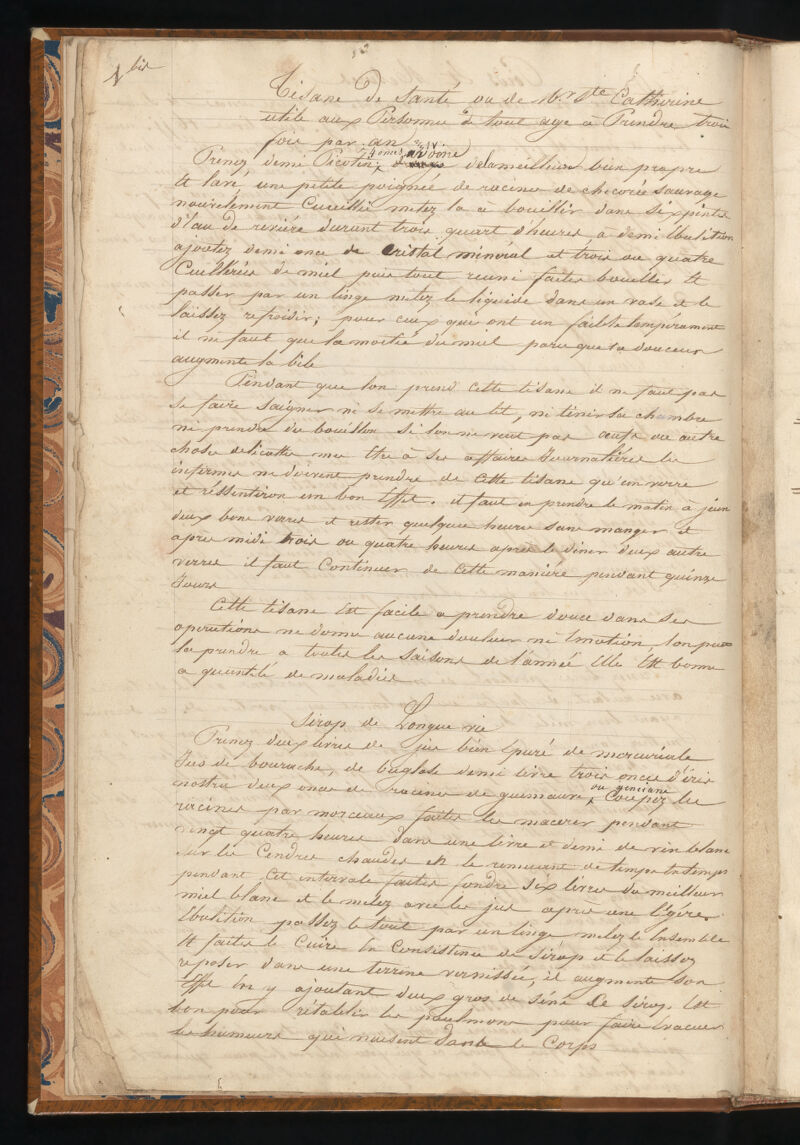 1 bis
Tisane de Santé ou de Mr Ste Catherine
utile aux Personne de tout age à Prendre trois
fois par an
Prenez demi Picotin, 4 onces avoine delameilleur bien propre
Et lavé une petite poignéé de racine de chicorée sauvage
nouvelement Cueillie metez la à bouillir dans six pintes
d'Eau de reviére durant trois quart d'heures a demi Ebulition
ajoutez demi once de Cristal minéral et trois ou quatre
Cuillérés de miel puis tout reuni faites bouillir Et
passer par un linge metez le liquide dans un vase et le
laissez refroidir; pour ceux qui ont un faible tempérament
il ne faut que la moitié du miel parce que sa douceur
augmente la bile
Pendant que lon prend Cette tisane il ne faut pas
se faire saigner ni se mettre au lit, ni tenir sa chambre
ni prendre du bouillon si lon ne veut pas oeufs ou autre
chose délicatte mes Etre à ses affaires Journaliéres les
infirmes ne doivent prendre de Cette tisane qu'un verre
et réssentiron un bon Effet. il faut en prendre le matin à jeun
deux bons verres et rester quelque heures sans manger et
apres midi trois ou quatre heures apres le diner deux autre
verres il faut Continuer de Cette maniére pendant quinze
Jours
Cette tisane Est facile a prendre douce dans ses
opérations ne donne aucune douleur ni Emotion lon peu
la prendre a toutes les saisons de l'année Elle Est bonne
a quantité de maladies
Sirop de Longue vie
Prenez deux livres de jus bien Epuré de mercuriale
Jus de bourache, de buglose demi livre trois onces d'iris
nostra deux once de racine de guimauve, ou genciane Coupez les
racines par morceaux faites les macerer pendant
vingt quatre heures dans une livre et demi de vin blanc
sur les Cendres chaudes et le remuant de temps En temps
pendant Cet intervale faites fondre six livres du meilleur
miel blanc et le melez avec les jus après une légére
Ebulition passez le tout par un linge melez le Ensemble
Et faites le Cuire En Consistence de Sirop et le laissez
reposer dans une terrine vernissée, il augmente son
Effet En y ajoutant deux gros de sené Ce Sirop Est
bon pour rétablir les poulmons pour faire Evacuer
les humeurs qui nuisent dans le Corps